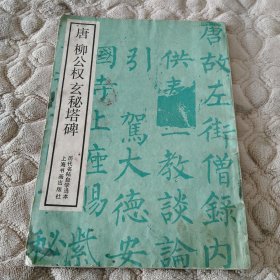 唐 柳公权 玄秘塔碑
历代名帖自学选本
上海书画出版社
唐故左街僧錄內
供三教談論
引駕大德安
國寺上座賜
紫
秘